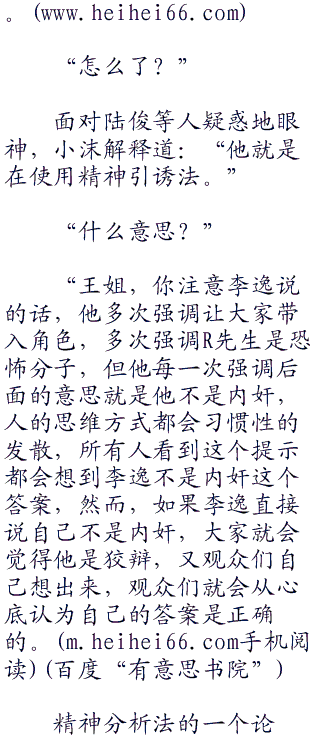 。(www.heihei66.com)
“怎么了？”
面对陆俊等人疑惑地眼
神，小沫解释道：“他就是
在使用精神引诱法。”
“什么意思？”
“王姐，你注意李逸说
的话，他多次强调让大家带
入角色，多次强调R先生是恐
怖分子，但他每一次强调后
面的意思就是他不是内奸，
人的思维方式都会习惯性的
发散，所有人看到这个提示
都会想到李逸不是内奸这个
答案，然而，如果李逸直接
说自己不是内奸，大家就会
觉得他是狡辩，又观众们自
己想出来，观众们就会从心
底认为自己的答案是正确
的。(m.heihei66.com手机阅
读)(百度“有意思书院”)
精神分析法的一个论